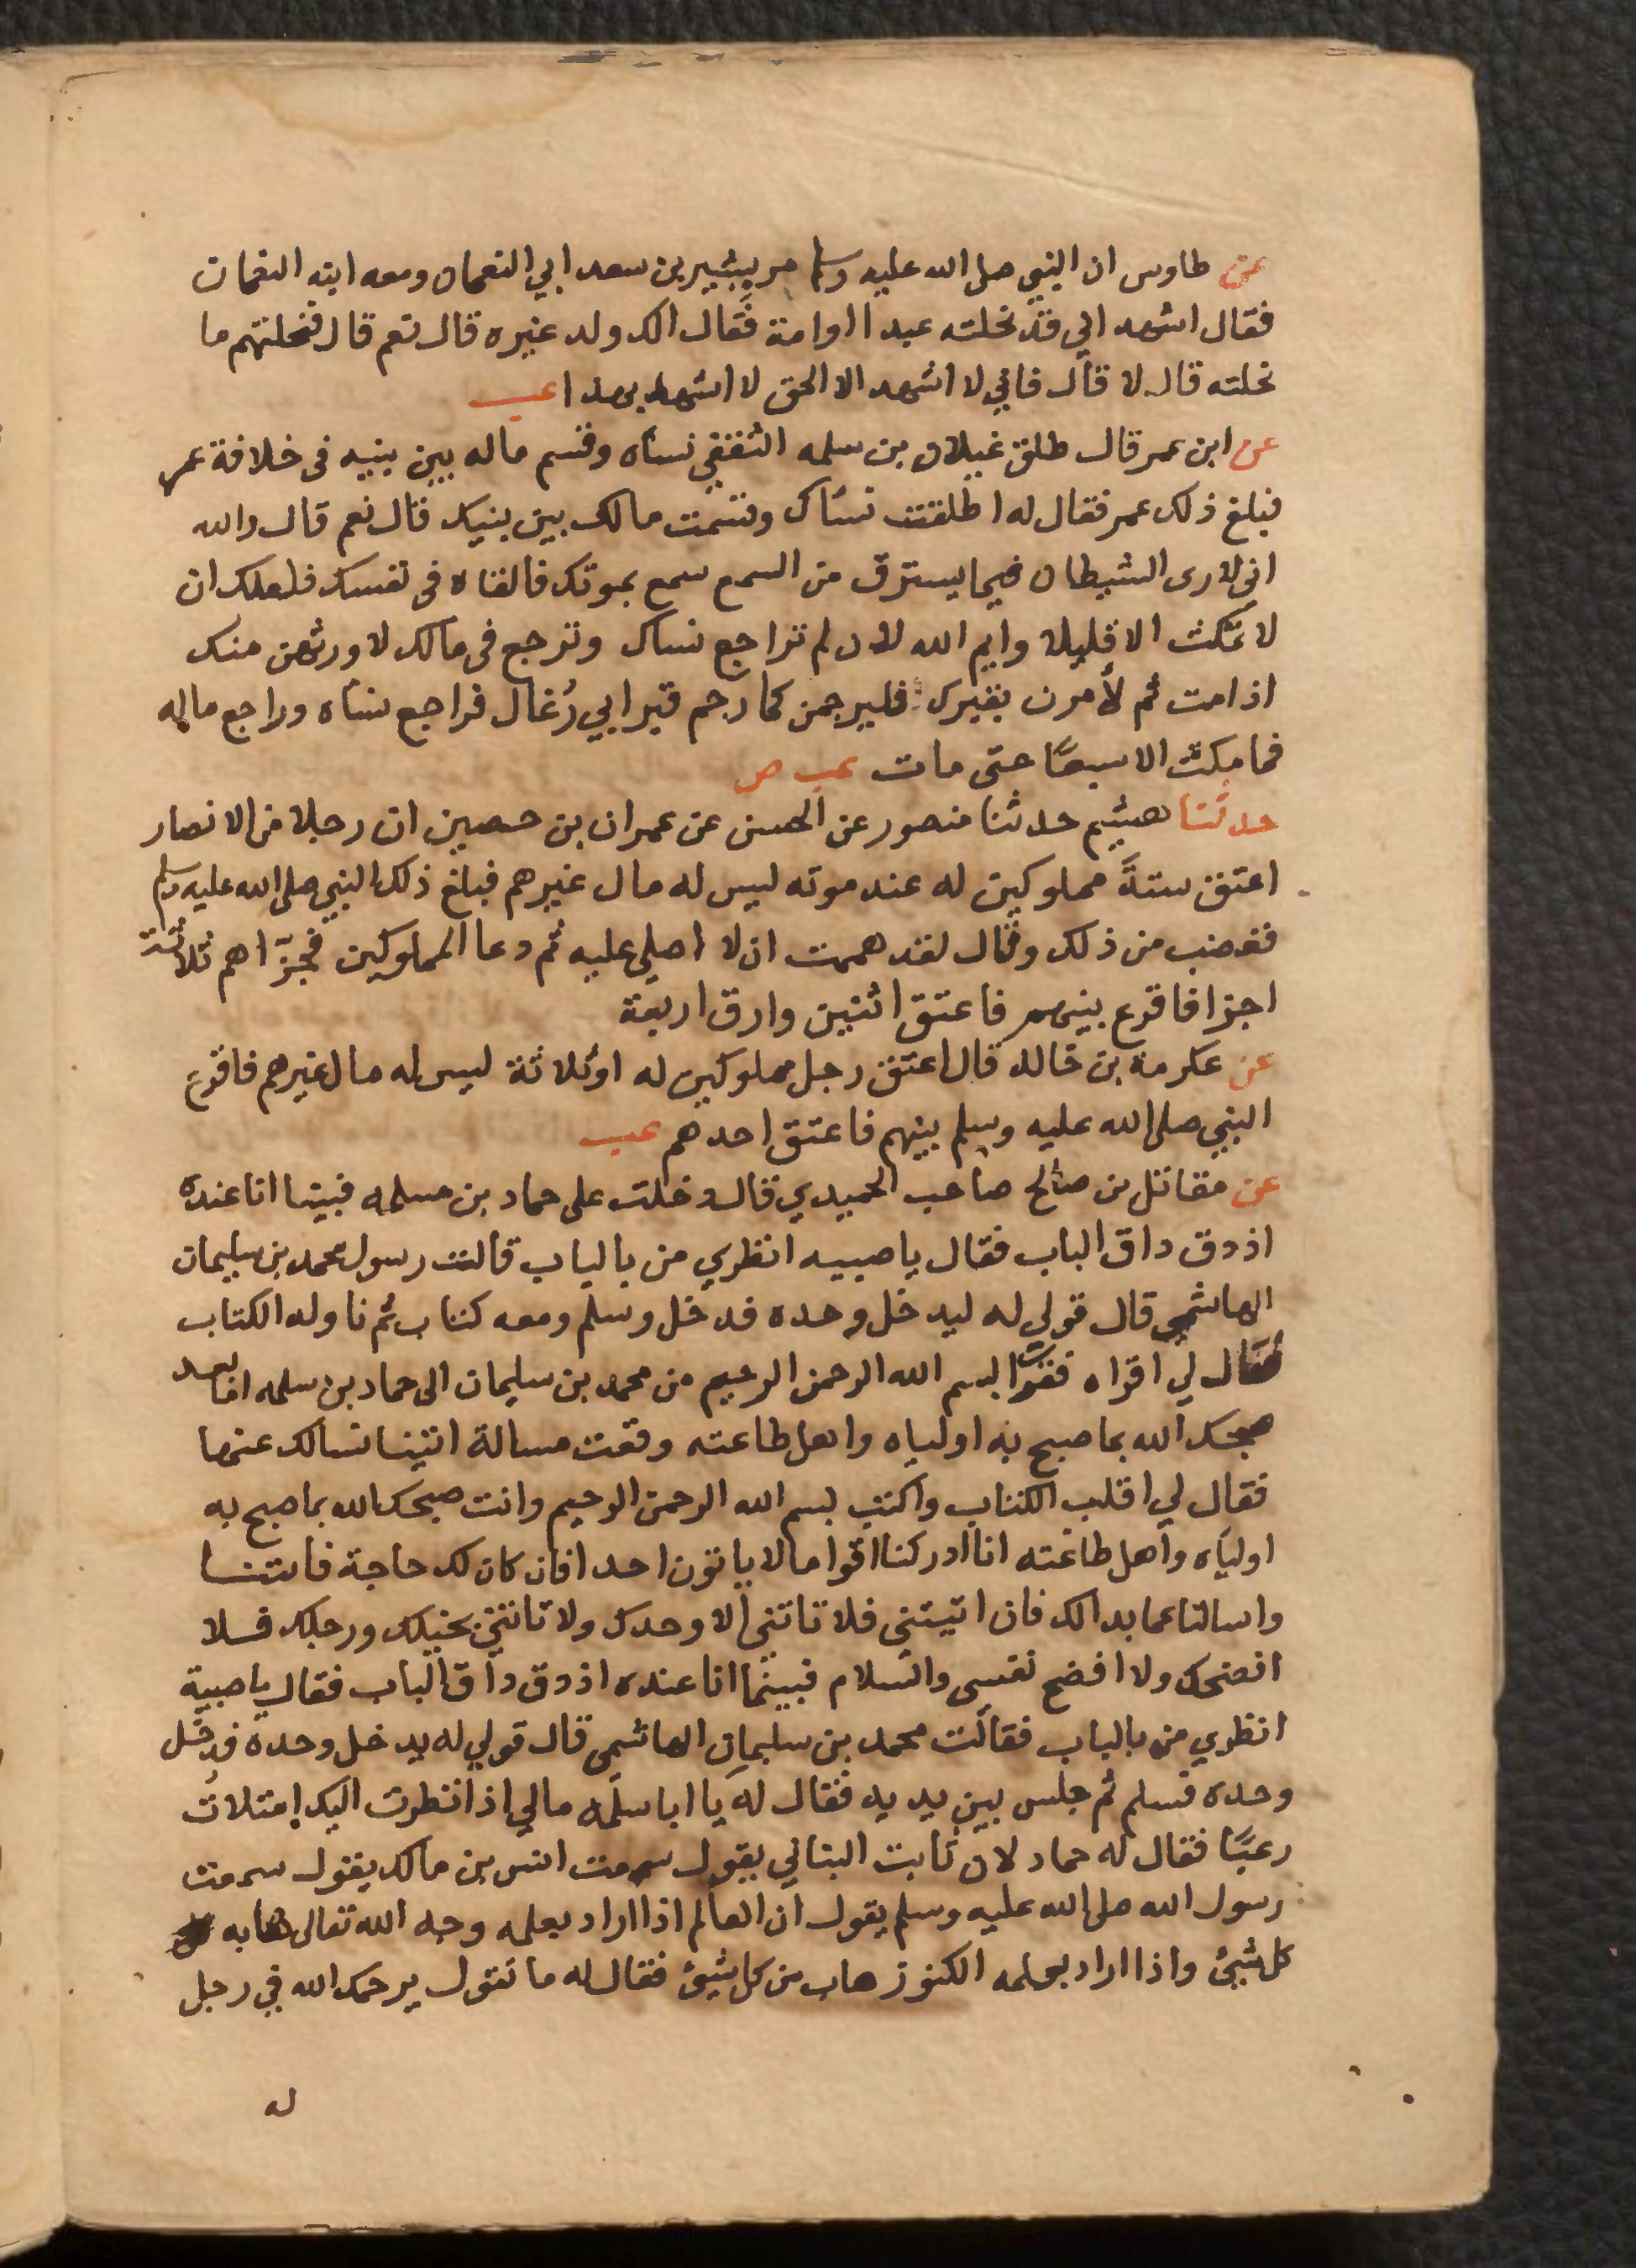 عن طاوس ان النبي صلى الله عليه وسلم مر ببشير بن سعد ابي النعمان ومعه ابنه النعمان
فقال اشهد اني قد نحلته عبدا او امة فقال الك ولد غيره قال نعم قال فنحلتهم ما
نحلته قال لا قال فاني لا اشهد الا الحق لا اشهد بهذا عب
عن ابن عمر قال طلق غيلان بن سلمه الثقفي نسآه وقسم ماله بين بنيه في خلافة عمر
فبلغ ذلك عمر فقال له اطلقت نسآك وقسمت مالك بين بنيك قال نعم قال والله
اني لارى الشيطان فيما يسترق من السمع سمع بموتك فالقاه في نفسك فلعلك ان
لا تمكث الا قليلا وايم الله لان لم تراجع نساك وترجع في مالك لاورثهن منك
اذا مت ثم لأمرن بقبرك فليرجمن كما رجم قبر ابي رُغال فراجع نسآه وراجع ماله
فما مكث الا سبعًا حتى مات عب ص
حدثنا هشيم حدثنا منصور عن الحسن عن عمران بن حصين ان رجلا من الانصار
اعتق ستةً مملوكين له عند موته ليس له مال غيرهم فبلغ ذلك النبي صلى الله عليه وسلم
فغضب من ذلك وقال لقد هممت ان لا اصلي عليه ثم دعا المملوكين فجزّاهم ثلاثة
اجزا فاقرع بينهم فاعتق اثنين وارق اربعة
عن عكرمة بن خالد قال اعتق رجل مملوكين له او ثلاثة ليس له مال غيرهم فاقرع
النبي صلى الله عليه وسلم بينهم فاعتق احدهم عب
عن مقاتل بن صالح صاحب الحميدي قال دخلت على حماد بن مسلمه فبينا انا عنده
اذ دق داق الباب فقال يا صبيه انظري من بالباب قالت رسول محمد بن سليمان
الهاشمي قال قولي له ليدخل وحده فدخل وسلم ومعه كتاب ثم ناوله الكتاب
فقال لي اقراه فقرات بسم الله الرحمن الرحيم من محمد بن سليمان الى حماد بن سلمه اما بعد
صبحك الله بما صبح به اولياه واهل طاعته وقعت مسالة اتينا نسالك عنها
فقال لي اقلب الكتاب واكتب بسم الله الرحمن الرحيم وانت صبحك الله بما صبح به
اوليآه واهل طاعته انا ادركنا اقواما لا ياتون احدا فان كان لك حاجة فاتنا
واسالنا عما بدا لك فان اتيتني فلا تاتني الا وحدك ولا تاتني بخيلك ورجلك فلا
افضحك ولا افضح نفسي والسلام فبينما انا عنده اذ دق داق الباب فقال يا صبية
انظري من بالباب فقالت محمد بن سليمان الهاشمي قال قولي له يدخل وحده فدخل
وحده فسلم ثم جلس بين يديه فقال له يا ابا سلمه مالي اذا نظرت اليك امتلات
رعبًا فقال له حماد لان ثابت البناني يقول سمعت انس بن مالك يقول سمعت
رسول الله صلى الله عليه وسلم يقول ان العالم اذا اراد بعلمه وجه الله تعالى هابه
كل شيئ واذا اراد بعلمه الكنوز هاب من كل شيئ فقال له ما تقول يرحمك الله في رجل
له